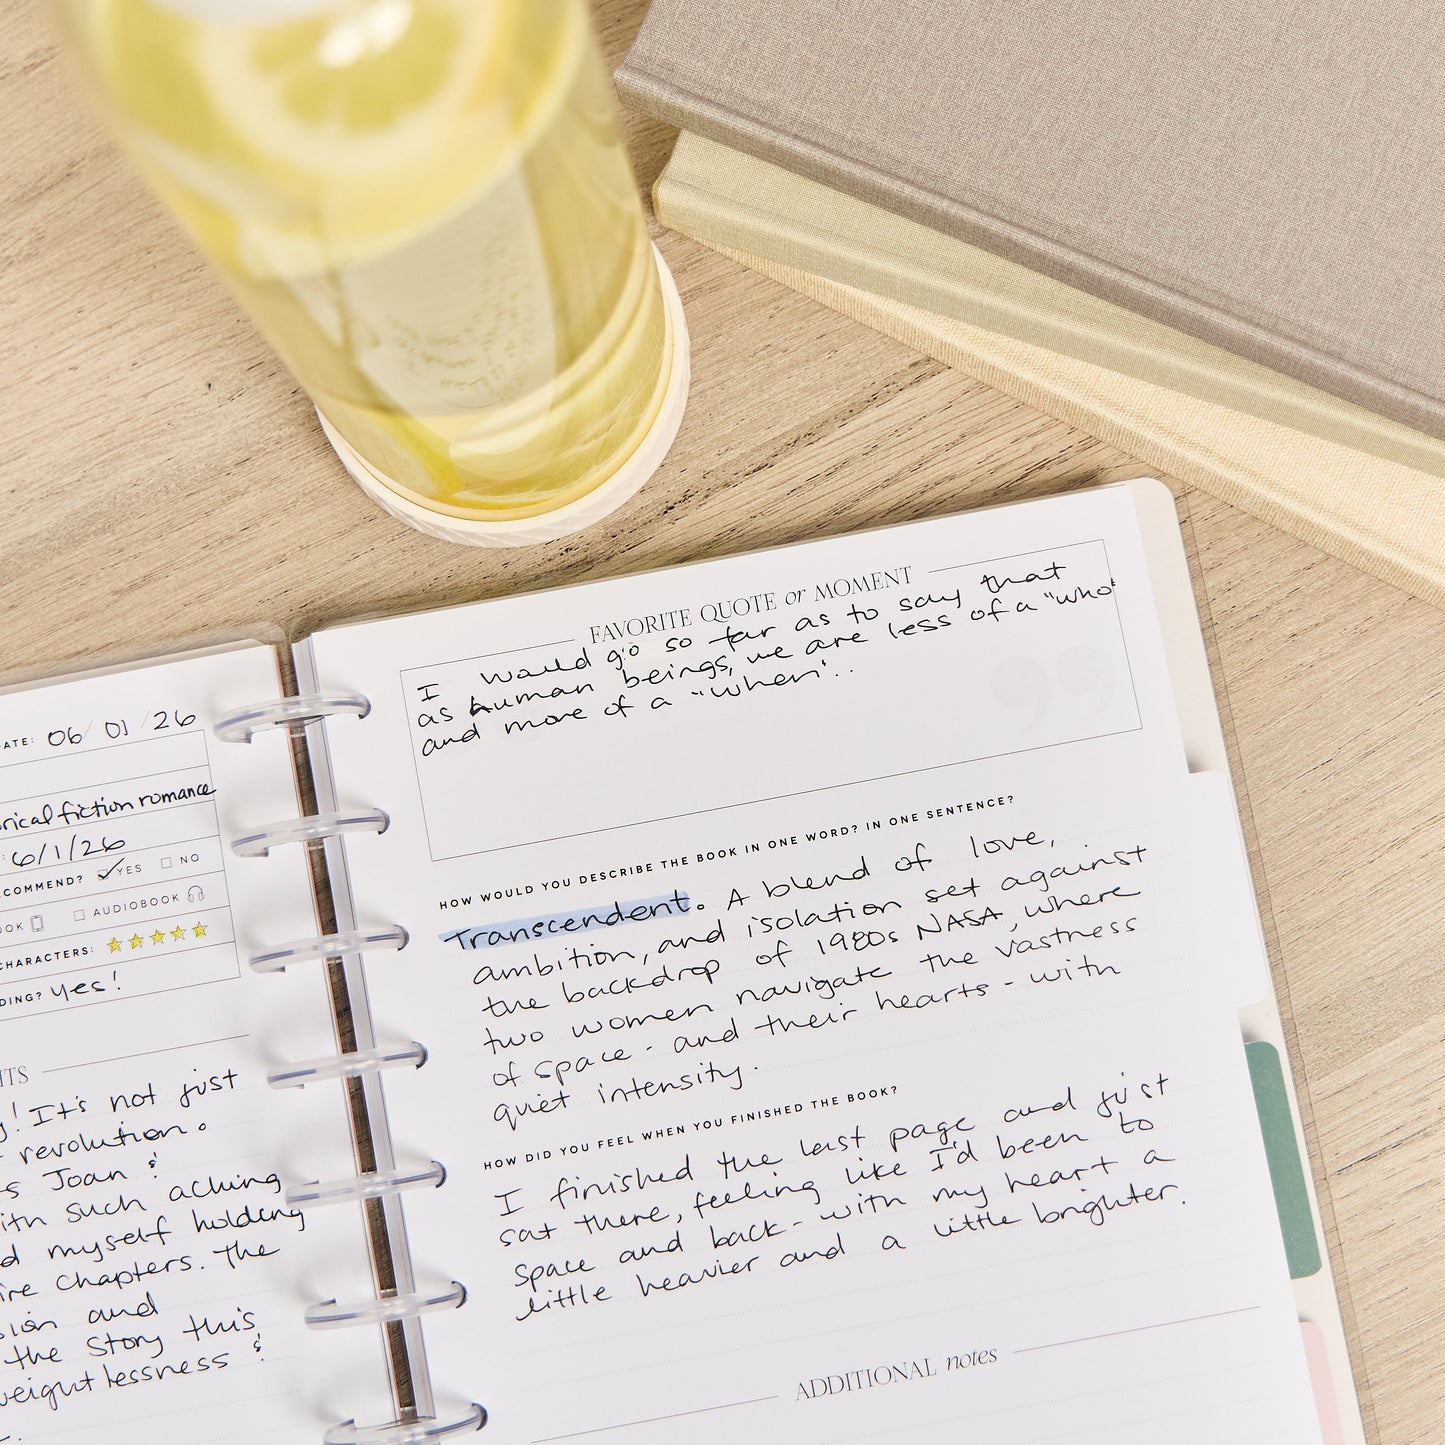 ATE: 06/01/26
rical fiction romance
: 6/1/26
COMMEND? YES NO
OOK AUDIOBOOK
CHARACTERS:
DING? yes!
HTS
y! It's not just
revolution.
s Joan &
ith such aching
d myself holding
ire chapters. The
sion and
the story this
weightlessness &
FAVORITE QUOTE or MOMENT
I would go so far as to say that
as human beings, we are less of a "who"
and more of a "when"..
HOW WOULD YOU DESCRIBE THE BOOK IN ONE WORD? IN ONE SENTENCE?
Transcendent. A blend of love,
ambition, and isolation set against
the backdrop of 1980s NASA, where
two women navigate the vastness
of space - and their hearts - with
quiet intensity.
HOW DID YOU FEEL WHEN YOU FINISHED THE BOOK?
I finished the last page and just
sat there, feeling like I'd been to
space and back - with my heart a
little heavier and a little brighter.
ADDITIONAL notes